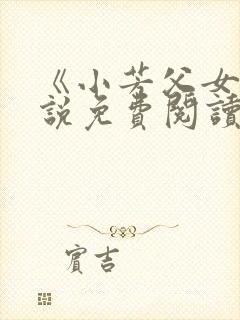 《小芳父女
說免費閱讀
賓吉